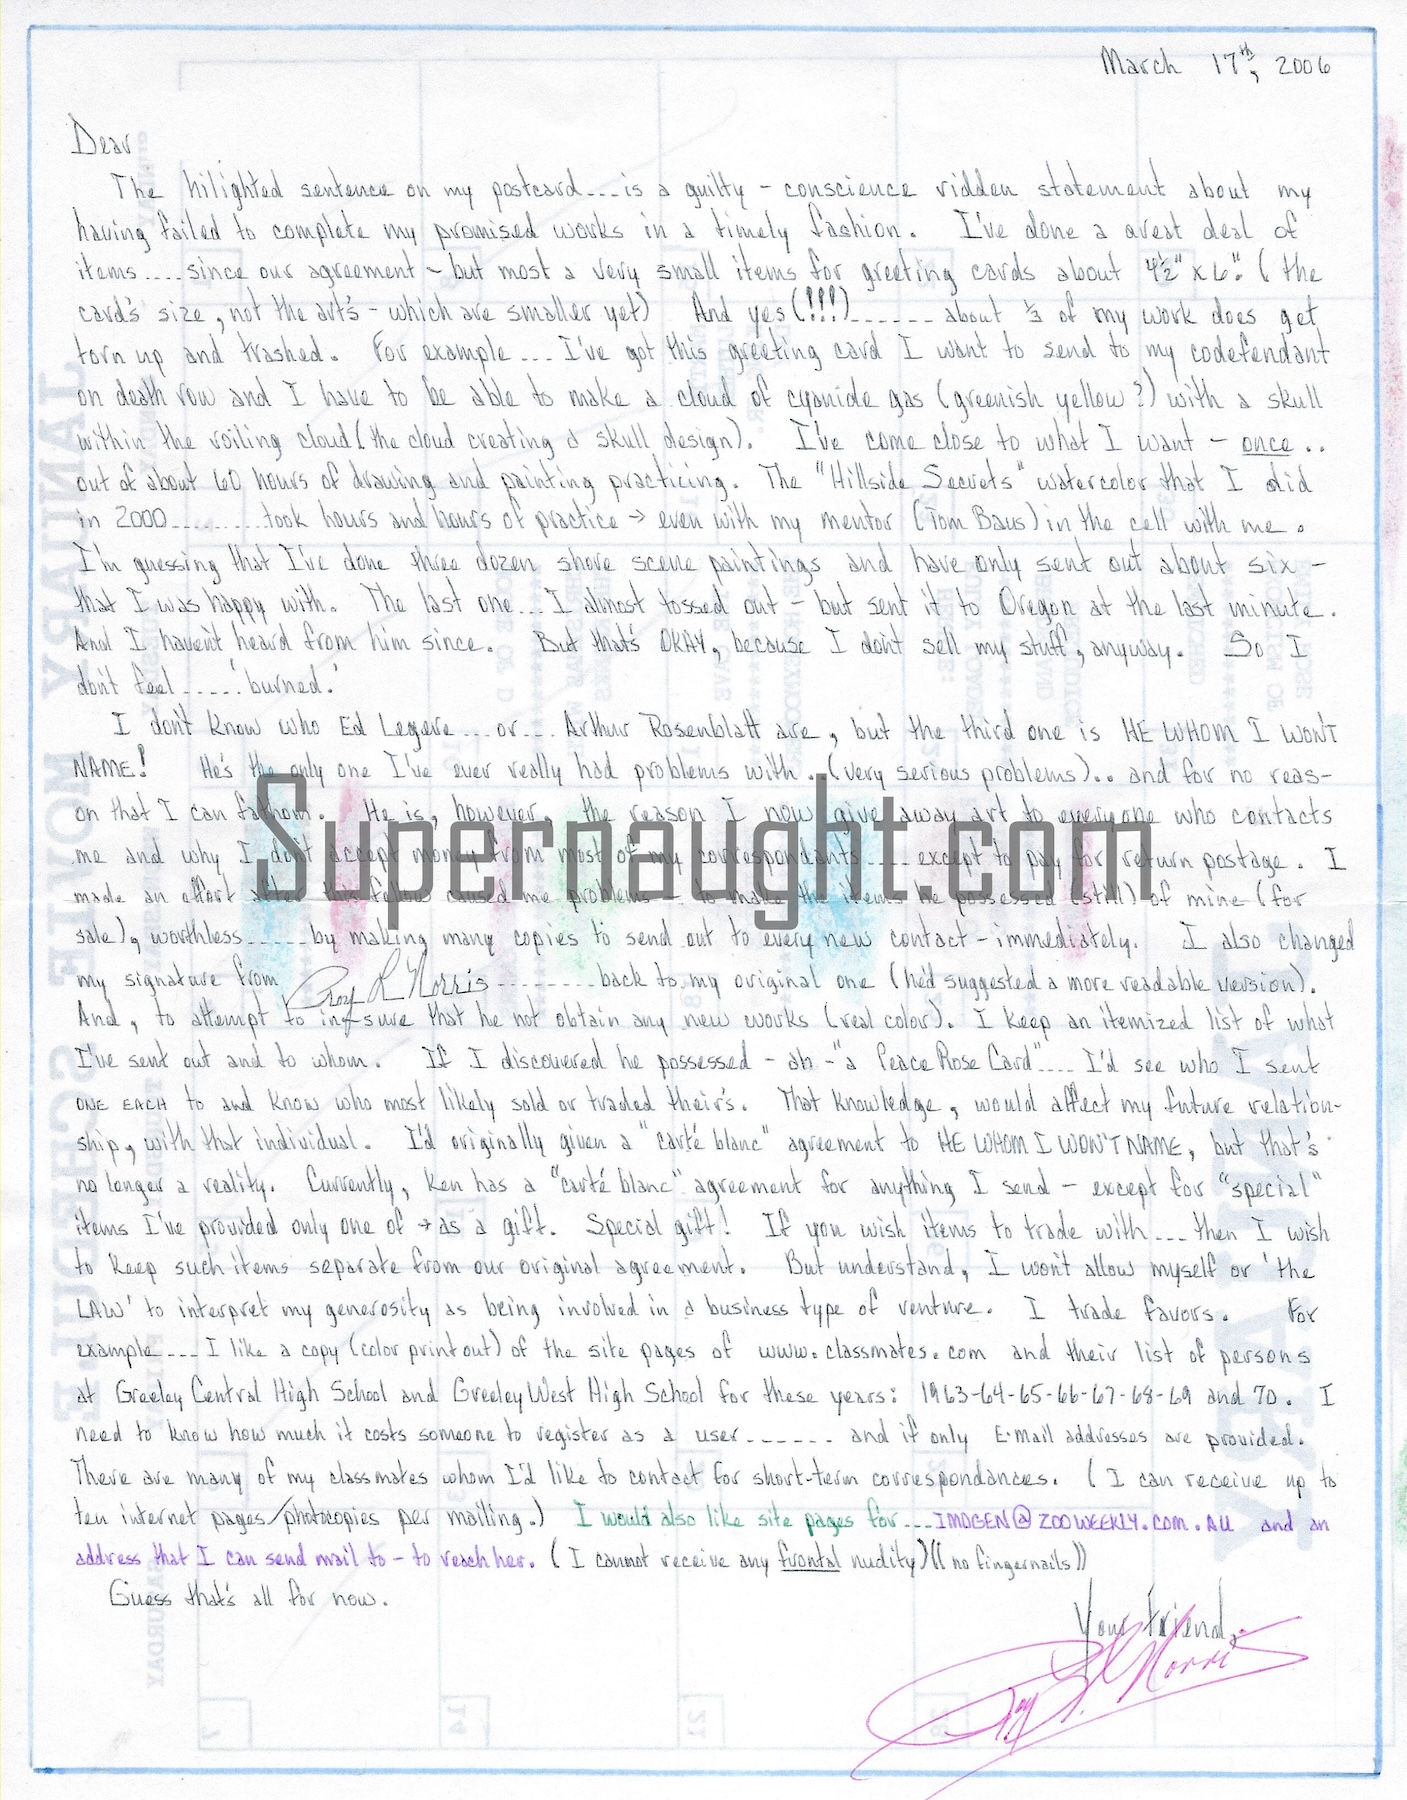 March 17th, 2006
Dear
The hilighted sentence on my postcard.... is a guilty - conscience ridden statement about my
having failed to complete my promised works in a timely fashion. I've done a great deal of
items.... since our agreement - but most a very small items for greeting cards about 4½" x 6". (the
card's size, not the art's - which are smaller yet) And yes (!!!)....... about ⅓ of my work does get
torn up and trashed. For example.... I've got this greeting card I want to send to my codefendant
on death row and I have to be able to make a cloud of cyanide gas (greenish yellow?) with a skull
within the roiling cloud (the cloud creating a skull design). I've come close to what I want - once..
out of about 60 hours of drawing and painting practicing. The "Hillside Secrets" watercolor that I did
in 2000......... took hours and hours of practice → even with my mentor (Tom Baus) in the cell with me.
I'm guessing that I've done three dozen shore scene paintings and have only sent out about six -
that I was happy with. The last one... I almost tossed out - but sent it to Oregon at the last minute.
And I haven't heard from him since. But that's OKAY, because I don't sell my stuff, anyway. So I
don't feel..... 'burned.'
I don't know who Ed Legere... or... Arthur Rosenblatt are, but the third one is HE WHOM I WON'T
NAME! He's the only one I've ever really had problems with.. (very serious problems).. and for no reas-
on that I can fathom. He is, however, the reason I now give away art to everyone who contacts
me and why I don't accept money from most of my correspondants.... except to pay for return postage. I
made an effort after that fellow caused me problems - to make the items he possessed (still) of mine (for
sale), worthless..... by making many copies to send out to every new contact - immediately. I also changed
my signature from Roy L Norris ........ back to my original one (he'd suggested a more readable version).
And, to attempt to in-sure that he not obtain any new works (real color). I keep an itemized list of what
I've sent out and to whom. If I discovered he possessed - ah - "a Peace Rose Card".... I'd see who I sent
ONE EACH to and know who most likely sold or traded their's. That knowledge, would affect my future relation-
ship, with that individual. I'd originally given a "carté blanc" agreement to HE WHOM I WON'T NAME, but that's
no longer a reality. Currently, Ken has a "carté blanc" agreement for anything I send - except for "special"
items I've provided only one of → as a gift. Special gift! If you wish items to trade with.... then I wish
to keep such items separate from our original agreement. But understand, I won't allow myself or 'the
LAW' to interpret my generosity as being involved in a business type of venture. I trade favors. For
example.... I like a copy (color printout) of the site pages of www.classmates.com and their list of persons
at Greeley Central High School and Greeley West High School for these years: 1963-64-65-66-67-68-69 and 70. I
need to know how much it costs someone to register as a user....... and if only E-mail addresses are provided.
There are many of my classmates whom I'd like to contact for short-term correspondances. (I can receive up to
ten internet pages/photocopies per mailing.) I would also like site pages for.... IMOGEN@ZOOWEEKLY.COM.AU and an
address that I can send mail to - to reach her. (I cannot receive any frontal nudity) ((no fingernails))
Guess that's all for now.
Your friend,
Roy L. Norris
Supernaught.com